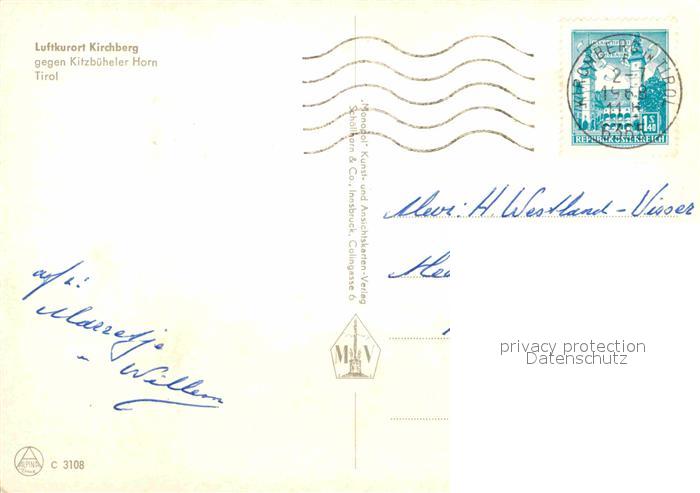 Luftkurort Kirchberg
gegen Kitzbüheler Horn
Tirol
"Monopol" Kunst- und Ansichtskarten-Verlag
Schöllhorn & Co., Innsbruck, Colingasse 6
KIRCHBERG IN TIROL
6365
1 S 40
REPUBLIK ÖSTERREICH
Mevr: H. Westland-Visser
afz:
Marretje
Willem
M V
privacy protection
Datenschutz
ALPINA
C 3108